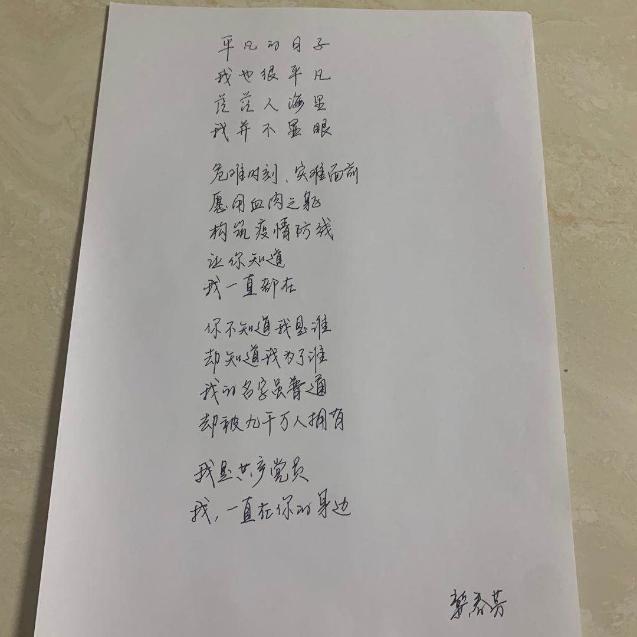 平凡的日子
我也很平凡
茫茫人海里
我并不显眼
危难时刻、灾难面前
愿用血肉之躯
构筑疫情防线
让你知道
我一直都在
你不知道我是谁
却知道我为了谁
我的名字虽普通
却被九千万人拥有
我是共产党员
我，一直在你的身边
春芳